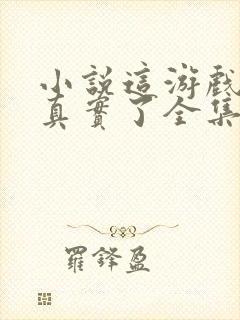 小說這游戲
真實了全集
羅鋒盈